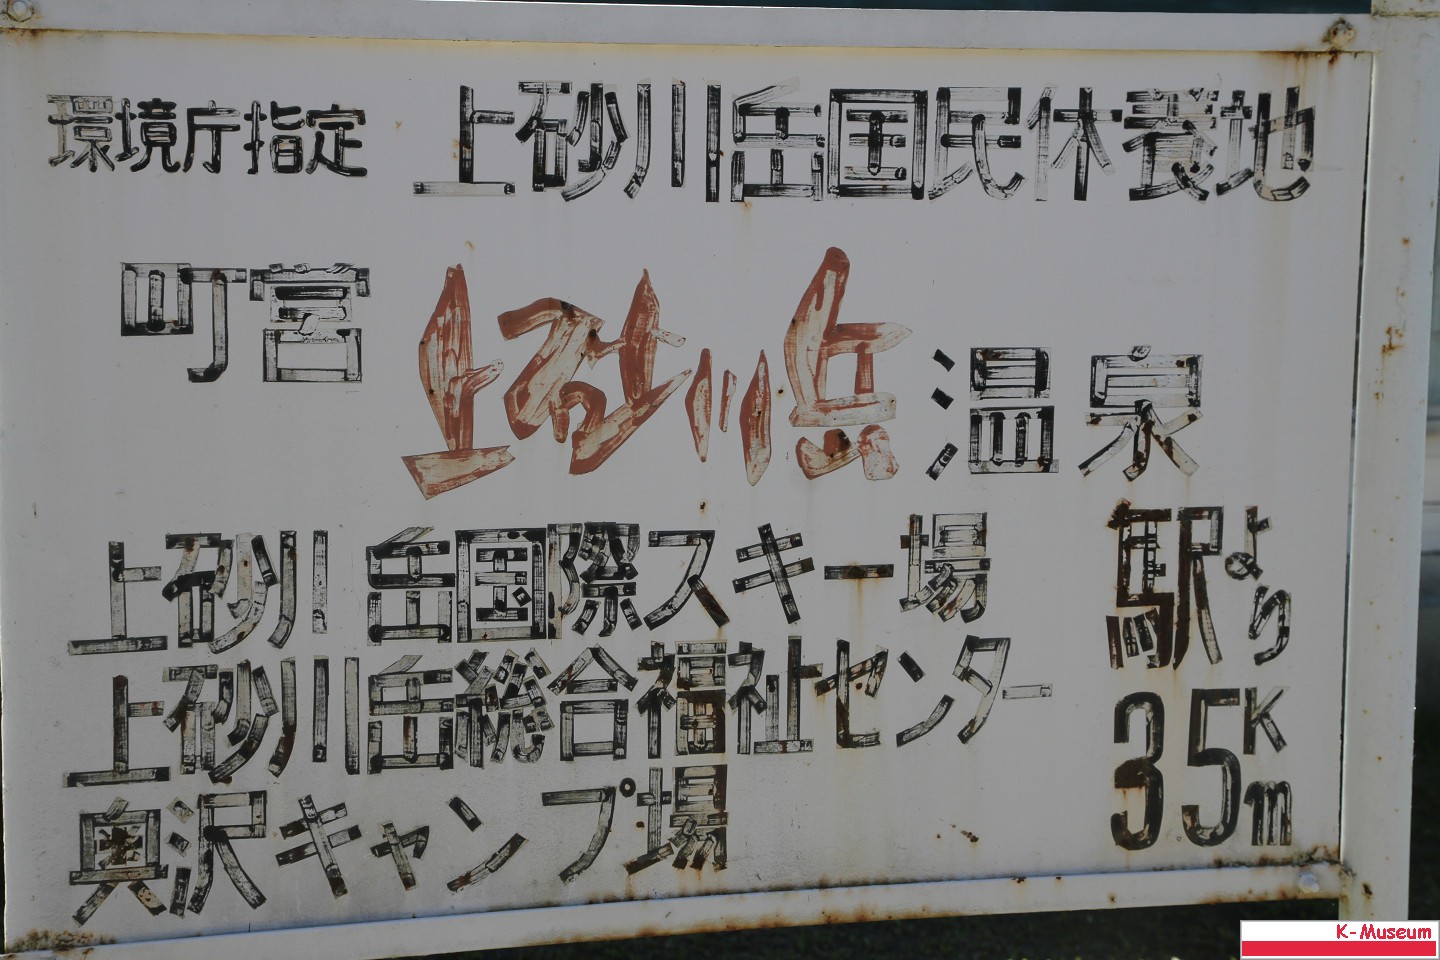 環境庁指定 上砂川岳国民休養地
町営 上砂川岳 温泉
上砂川岳国際スキー場
上砂川岳総合福祉センター
奥沢キャンプ場
駅より
35Km
K-Museum